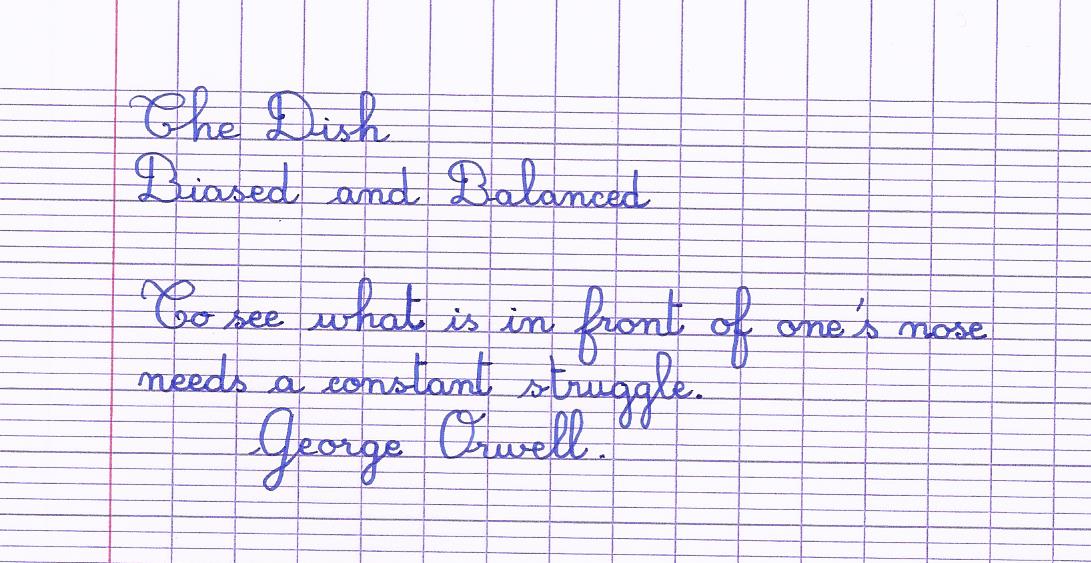 The Dish
Biased and Balanced
To see what is in front of one's nose
needs a constant struggle.
George Orwell.